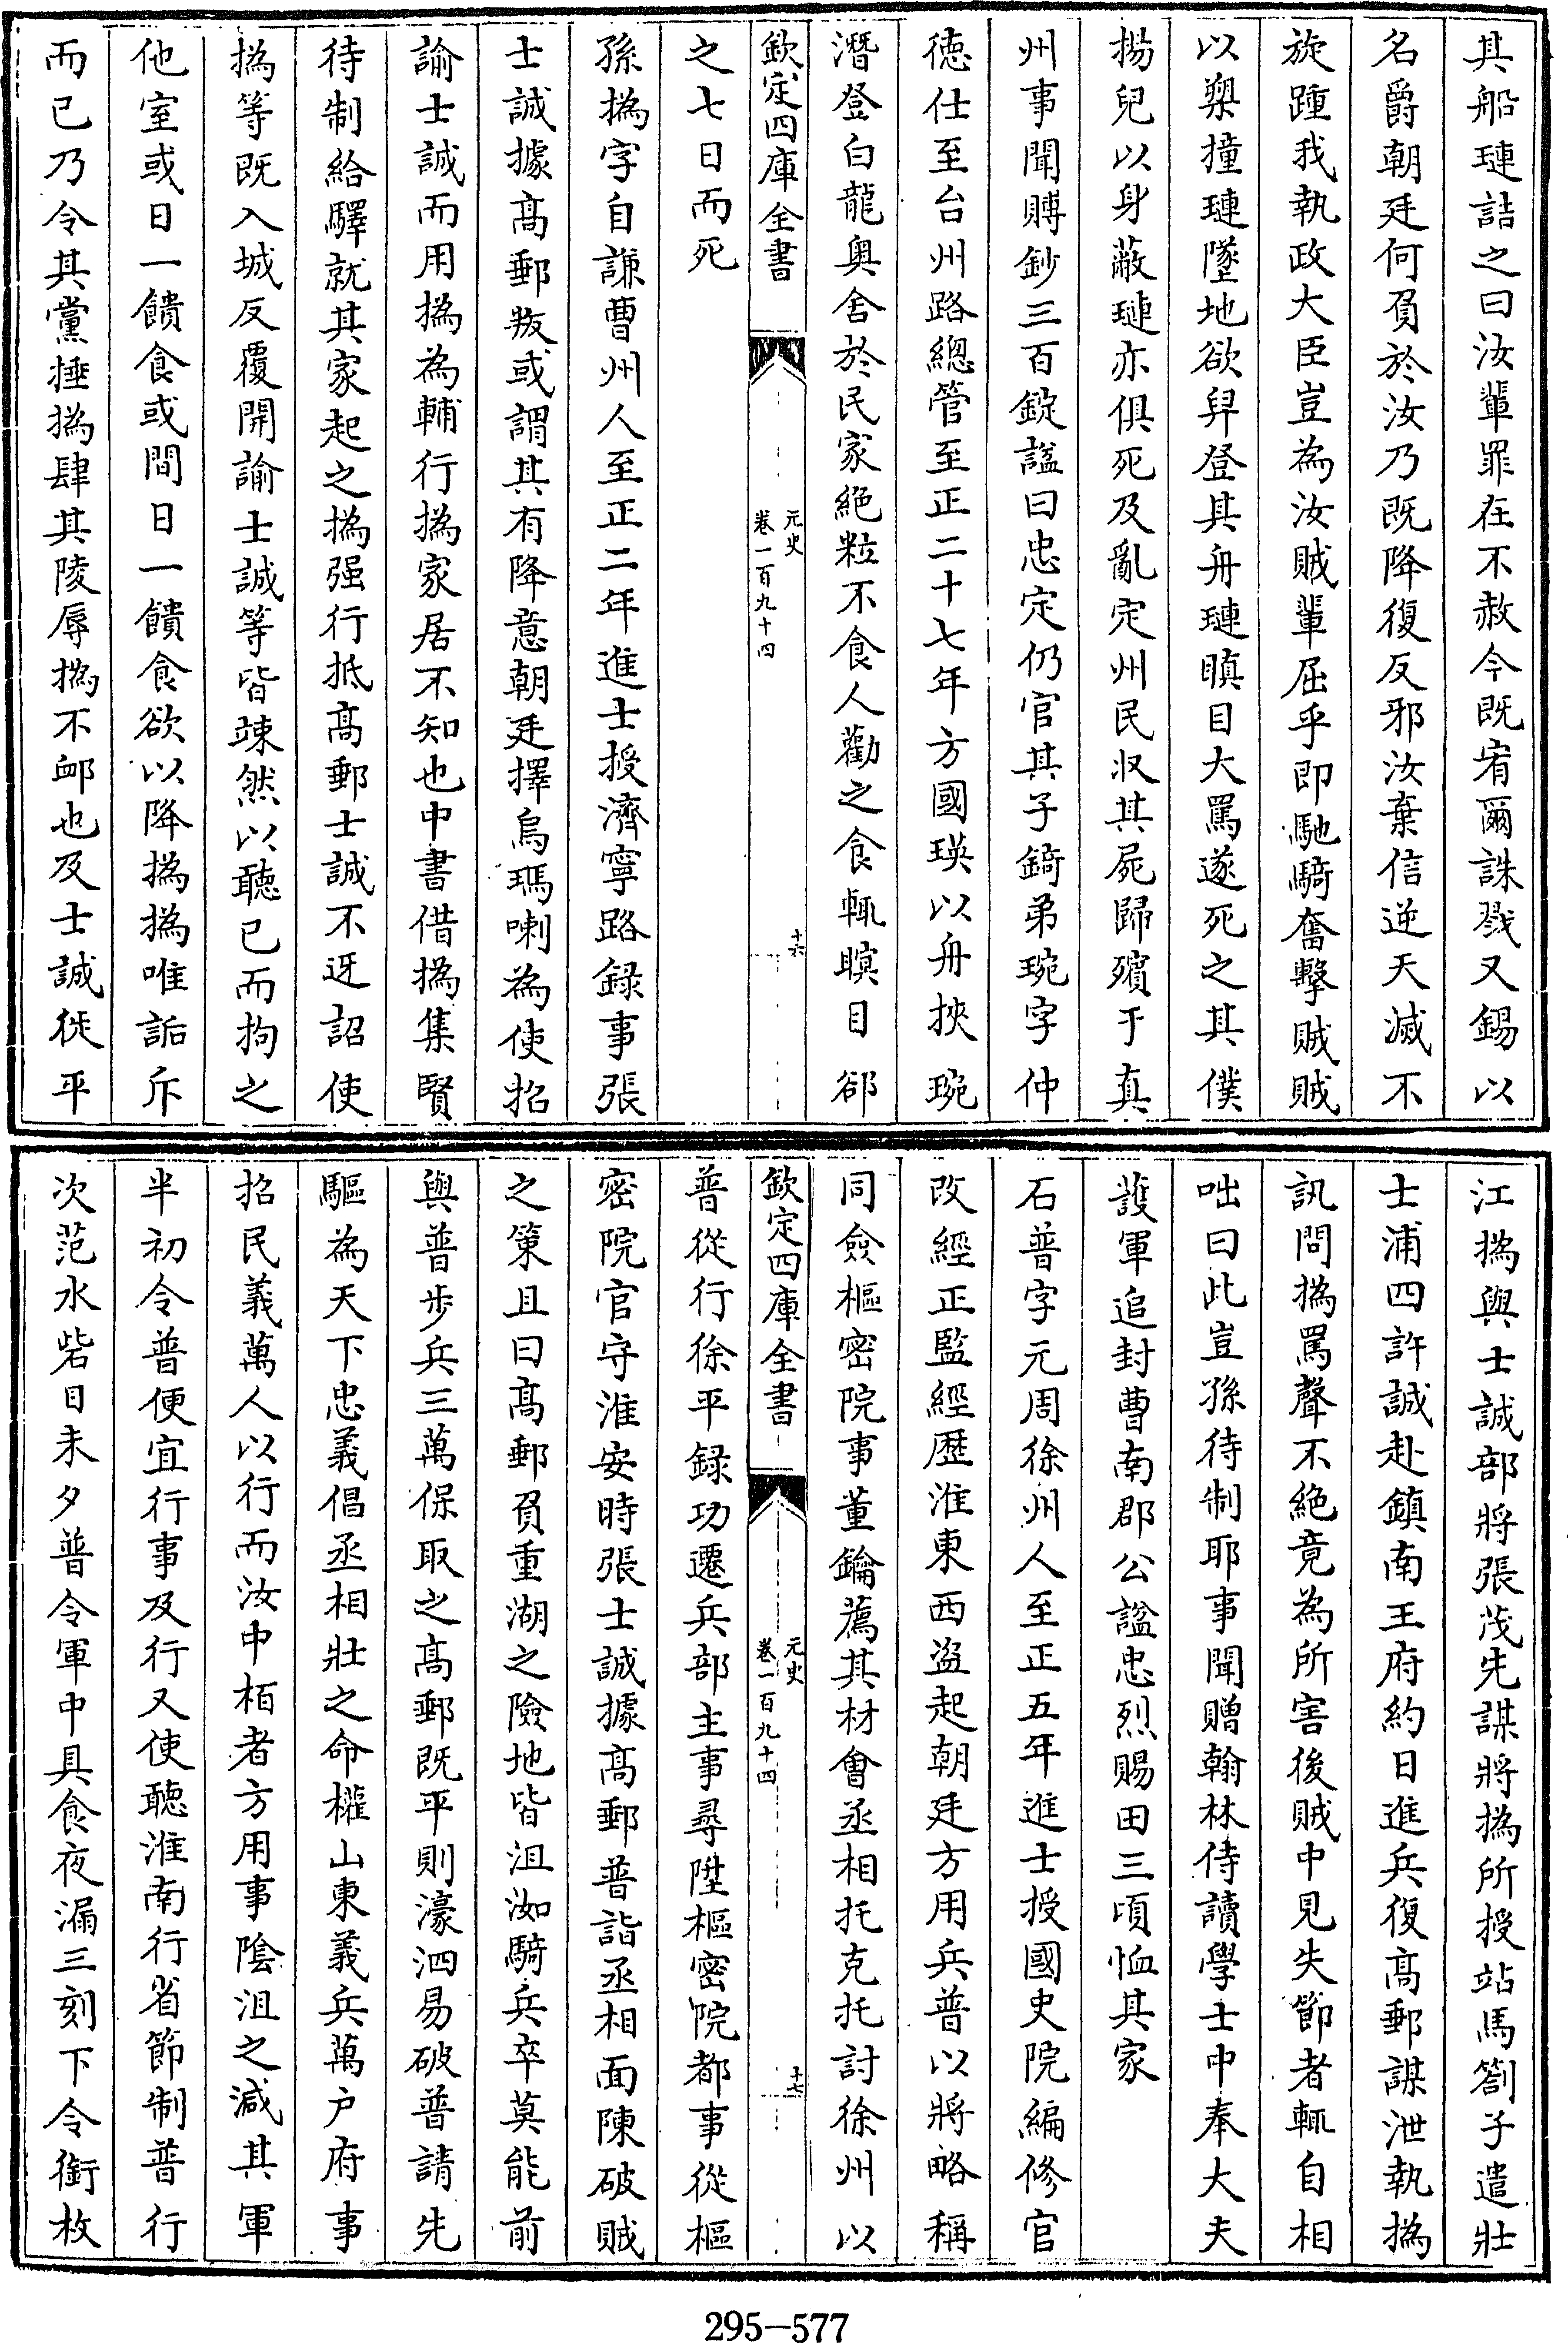 其船璉詰之曰汝輩罪在不赦今既宥爾誅戮又錫以
名爵朝廷何負於汝乃既降復反邪汝棄信逆天滅不
旋踵我執政大臣豈為汝賊輩屈乎即馳騎奮擊賊賊
以槊撞璉墜地欲舁登其舟璉瞋目大罵遂死之其僕
揚兒以身蔽璉亦俱死及亂定州民収其屍歸殯于真
州事聞賻鈔三百錠諡曰忠定仍官其子錡弟琬字仲
德仕至台州路總管至正二十七年方國瑛以舟挾琬
潛登白龍奥舍於民家絶粒不食人勸之食輒瞑目卻
欽定四庫全書
元史
卷一百九十四
十六
之七日而死
孫撝字自謙曹州人至正二年進士授濟寧路録事張
士誠據高郵叛或謂其有降意朝廷擇烏瑪喇為使招
諭士誠而用撝為輔行撝家居不知也中書借撝集賢
待制給驛就其家起之撝强行抵高郵士誠不迓詔使
撝等既入城反覆開諭士誠等皆竦然以聽已而拘之
他室或日一饋食或間日一饋食欲以降撝撝唯詬斥
而已乃令其黨捶撝肆其陵辱撝不䘏也及士誠徙平
江撝與士誠部將張茂先謀將撝所授站馬劄子遣壯
士浦四許誠赴鎮南王府約日進兵復高郵謀泄執撝
訊問撝罵聲不絶竟為所害後賊中見失節者輒自相
咄曰此豈孫待制耶事聞贈翰林侍讀學士中奉大夫
護軍追封曹南郡公諡忠烈賜田三頃恤其家
石普字元周徐州人至正五年進士授國史院編修官
改經正監經歴淮東西盜起朝廷方用兵普以將略稱
同僉樞密院事董鑰薦其材會丞相托克托討徐州以
欽定四庫全書
元史
卷一百九十四
十七
普從行徐平録功遷兵部主事尋陞樞密院都事從樞
密院官守淮安時張士誠據高郵普詣丞相面陳破賊
之策且曰高郵負重湖之險地皆沮洳騎兵卒莫能前
與普步兵三萬保取之高郵既平則濠泗易破普請先
驅為天下忠義倡丞相壯之命權山東義兵萬户府事
招民義萬人以行而汝中栢者方用事陰沮之減其軍
半初令普便宜行事及行又使聽淮南行省節制普行
次范水砦日未夕普令軍中具食夜漏三刻下令銜枚
295-577